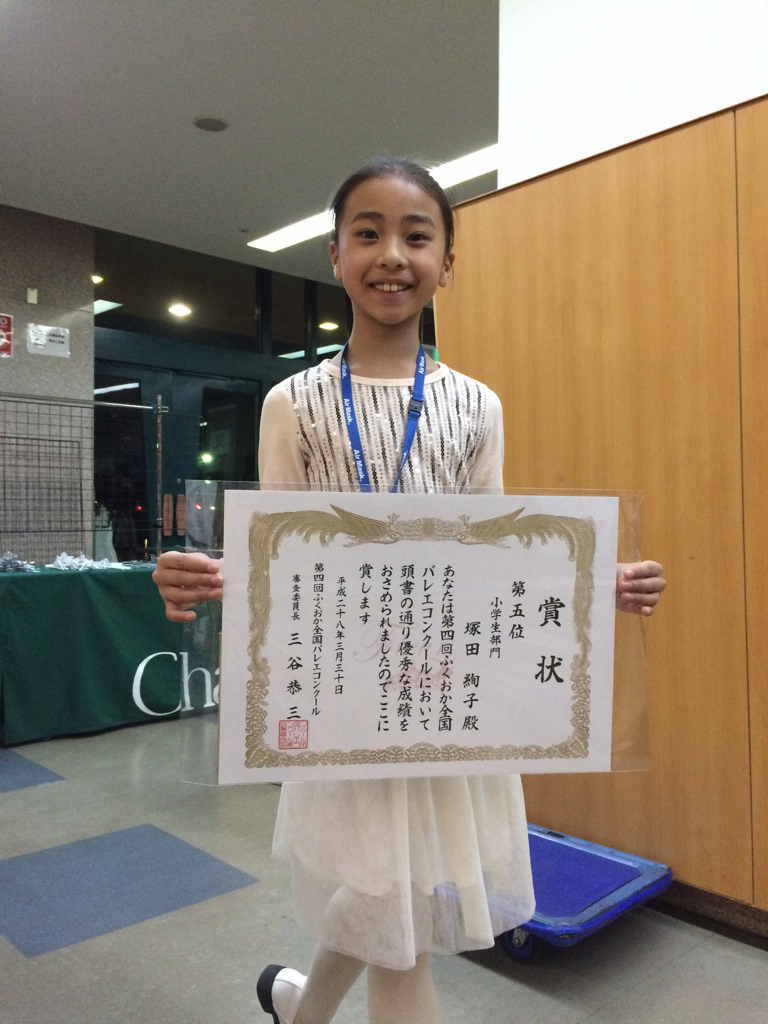 賞状
第五位
小学生部門
塚田 絢子 殿
あなたは第四回ふくおか全国
バレエコンクールにおいて
頭書の通り優秀な成績を
おさめられましたのでここに
賞します
平成二十八年三月三十日
第四回ふくおか全国バレエコンクール
審査委員長 三谷恭三
Air Mask.
Air Mask.
Cha